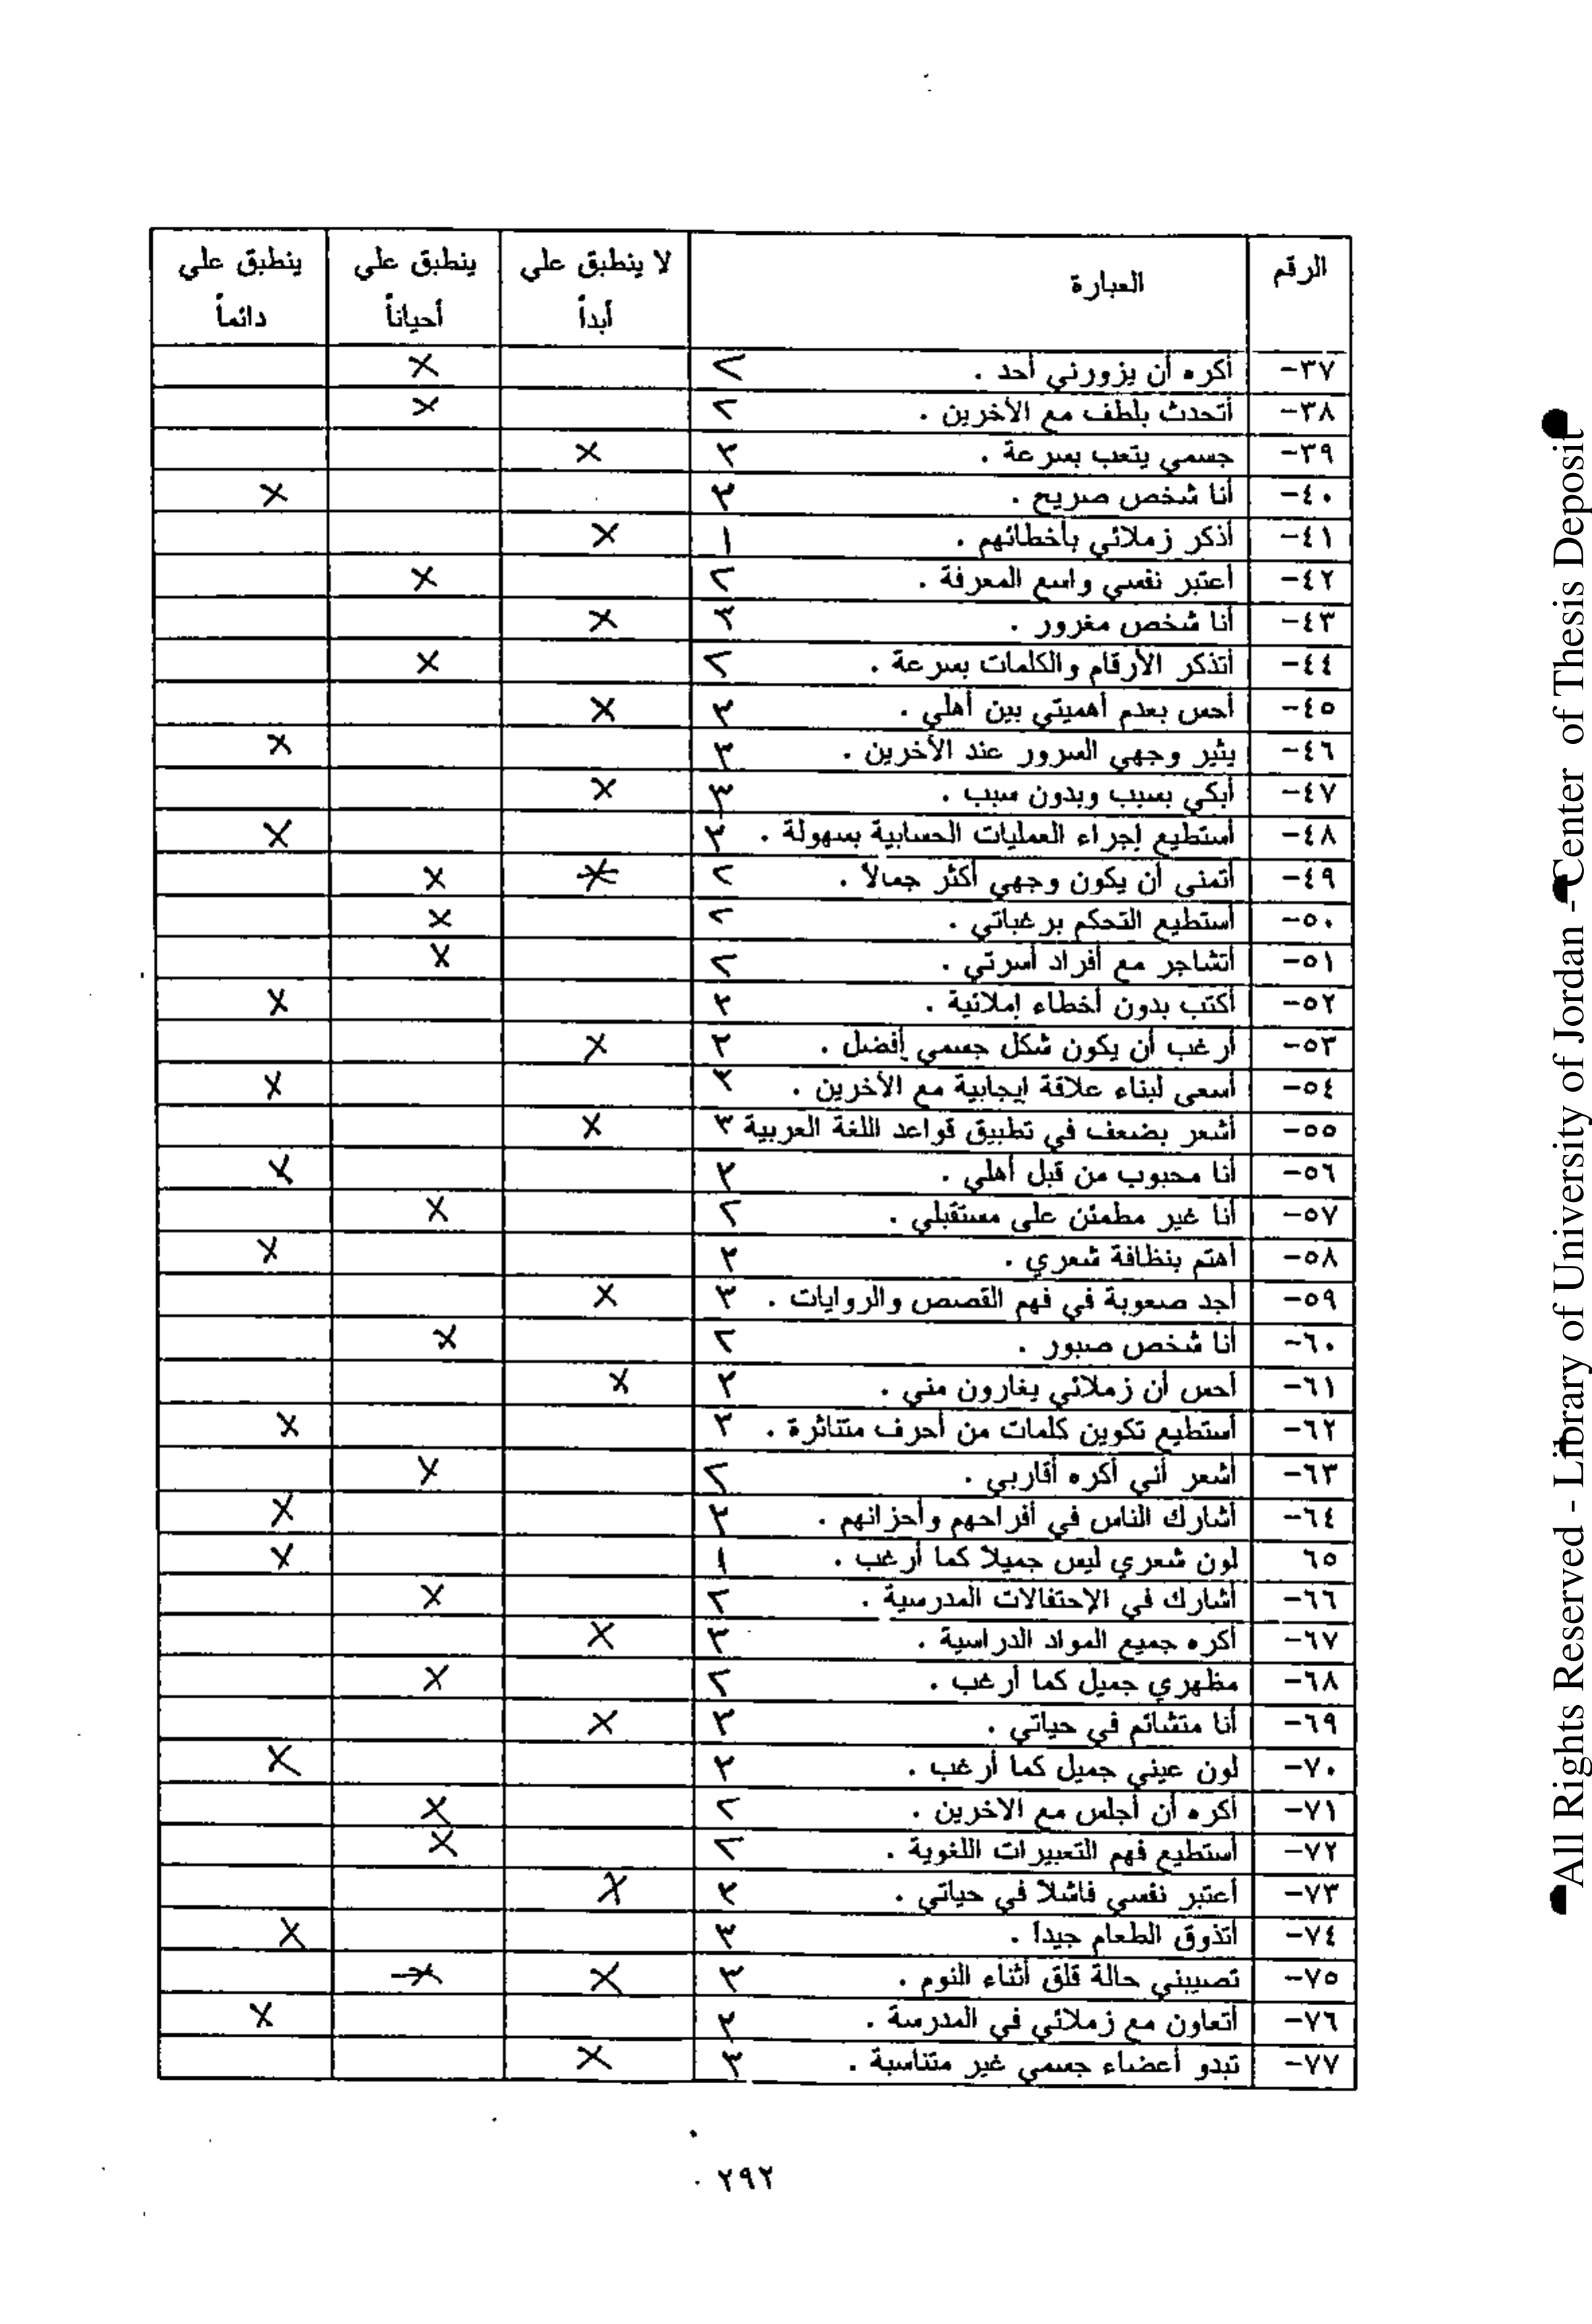 الرقم العبارة لا ينطبق علي أبداً ينطبق علي أحياناً ينطبق علي دائماً
٣٧- أكره أن يزورني أحد . ٢ ×
٣٨- أتحدث بلطف مع الأخرين . ٢ ×
٣٩- جسمي يتعب بسرعة . ٣ ×
٤٠- أنا شخص صريح . ٣ ×
٤١- أذكر زملائي بأخطائهم . ١ ×
٤٢- أعتبر نفسي واسع المعرفة . ٢ ×
٤٣- أنا شخص مغرور . ٣ ×
٤٤- أتذكر الأرقام والكلمات بسرعة . ٢ ×
٤٥- أحس بعدم أهميتي بين أهلي . ٣ ×
٤٦- يثير وجهي السرور عند الأخرين . ٣ ×
٤٧- أبكي بسبب وبدون سبب . ٣ ×
٤٨- أستطيع إجراء العمليات الحسابية بسهولة . ٣ ×
٤٩- أتمنى أن يكون وجهي أكثر جمالاً . ٢ × ×
٥٠- أستطيع التحكم برغباتي . ٢ ×
٥١- أتشاجر مع أفراد أسرتي . ٢ ×
٥٢- أكتب بدون أخطاء إملائية . ٣ ×
٥٣- أرغب أن يكون شكل جسمي أفضل . ٣ ×
٥٤- أسعى لبناء علاقة إيجابية مع الأخرين . ٣ ×
٥٥- أشعر بضعف في تطبيق قواعد اللغة العربية ٣ ×
٥٦- أنا محبوب من قبل أهلي . ٣ ×
٥٧- أنا غير مطمئن على مستقبلي . ٢ ×
٥٨- أهتم بنظافة شعري . ٣ ×
٥٩- أجد صعوبة في فهم القصص والروايات . ٣ ×
٦٠- أنا شخص صبور . ٢ ×
٦١- أحس أن زملائي يغارون مني . ٣ ×
٦٢- أستطيع تكوين كلمات من أحرف متناثرة . ٣ ×
٦٣- أشعر أني أكره أقاربي . ٢ ×
٦٤- أشارك الناس في أفراحهم وأحزانهم . ٣ ×
٦٥ لون شعري ليس جميلاً كما أرغب . ١ ×
٦٦- أشارك في الإحتفالات المدرسية . ٢ ×
٦٧- أكره جميع المواد الدراسية . ٣ ×
٦٨- مظهري جميل كما أرغب . ٢ ×
٦٩- أنا متشائم في حياتي . ٣ ×
٧٠- لون عيني جميل كما أرغب . ٣ ×
٧١- أكره أن أجلس مع الاخرين . ٢ ×
٧٢- أستطيع فهم التعبيرات اللغوية . ٢ ×
٧٣- أعتبر نفسي فاشلاً في حياتي . ٣ ×
٧٤- أتذوق الطعام جيداً . ٣ ×
٧٥- تصيبني حالة قلق أثناء النوم . ٣ × ×
٧٦- أتعاون مع زملائي في المدرسة . ٣ ×
٧٧- تبدو أعضاء جسمي غير متناسبة . ٣ ×
٢٩٢
All Rights Reserved - Library of University of Jordan - Center of Thesis Deposit